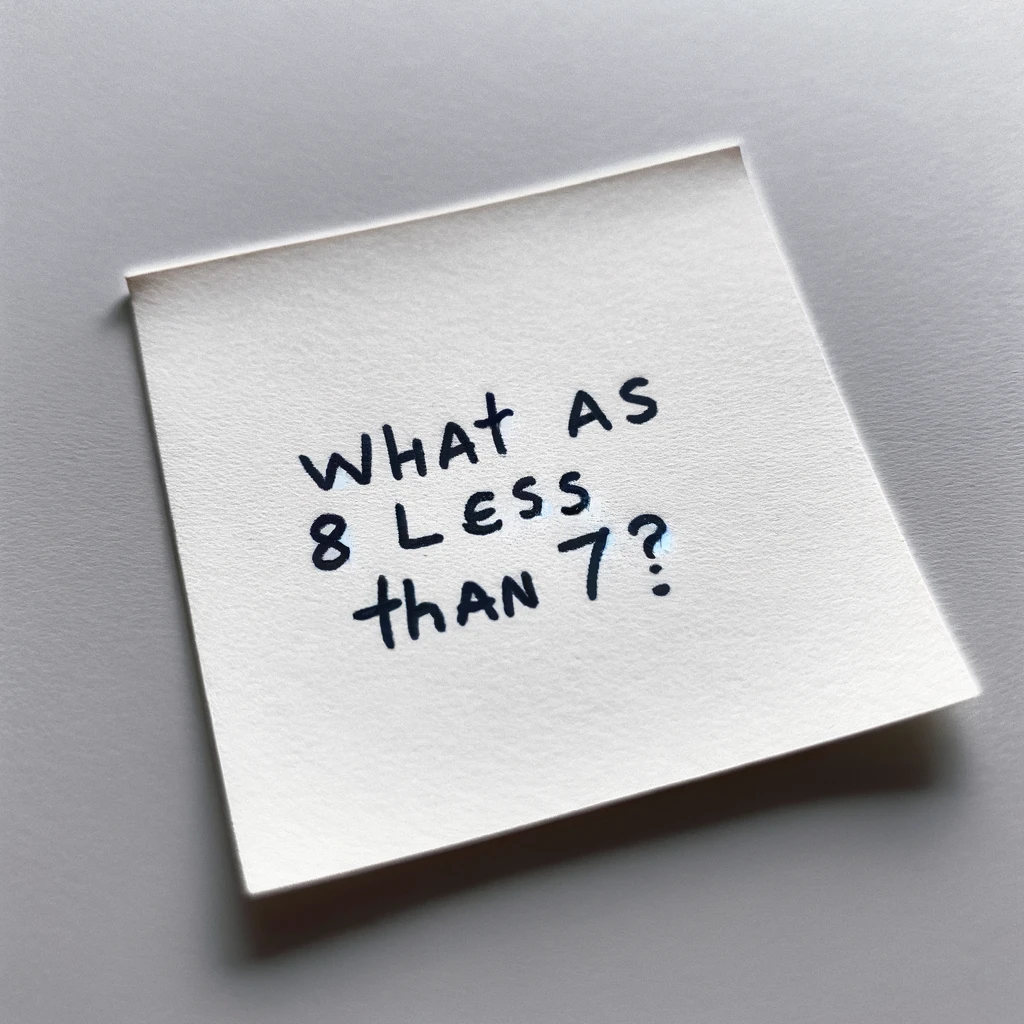 WHAt AS
8 LESS
thAN 7?